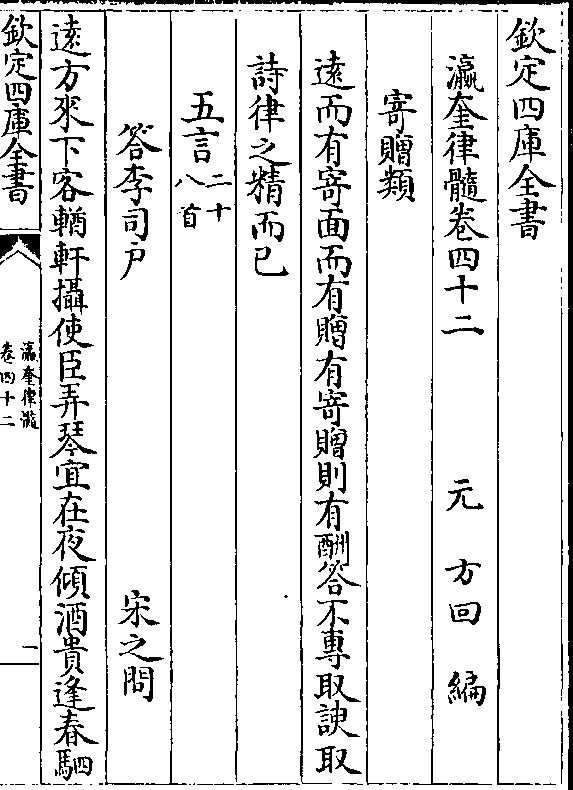 欽定四庫全書
瀛奎律髓卷四十二　元　方回　編
寄贈類
遠而有寄面而有贈有寄贈則有酬答不專取諛取
詩律之精而已
五言二十八首
答李司户　宋之問
遠方來下客輶軒攝使臣弄琴宜在夜傾酒貴逢春駟
欽定四庫全書
瀛奎律髓
卷四十二
一